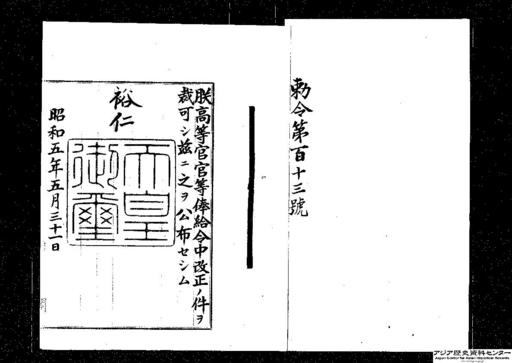 勅令第百十三號
朕高等官官等俸給令中改正ノ件ヲ
裁可シ茲ニ之ヲ公布セシム
裕仁
天皇
御璽
昭和五年五月三十一日
アジア歴史資料センター
Japan Center for Asian Historical Records